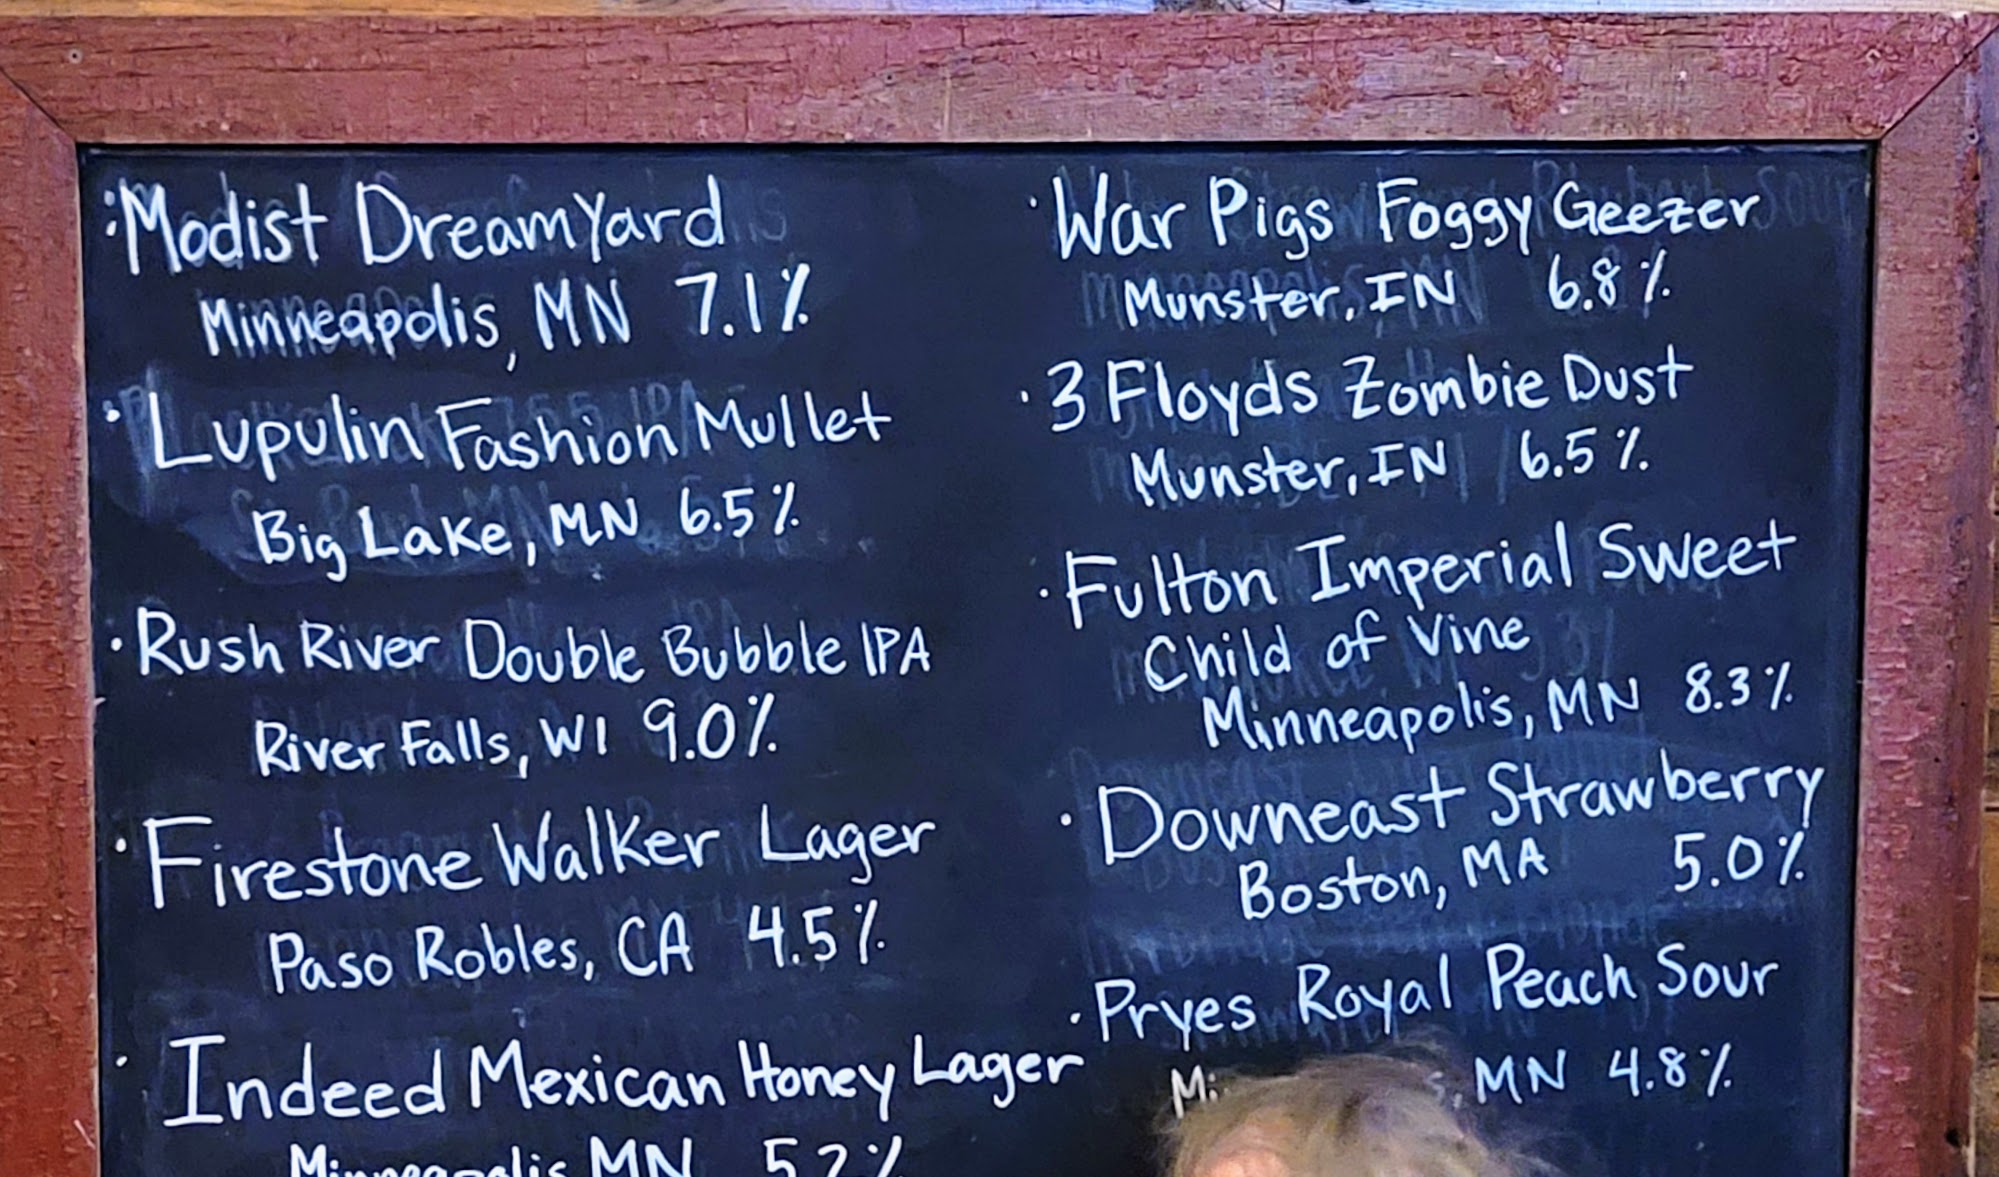 Modist Dreamyard
Minneapolis, MN 7.1%
Lupulin Fashion Mullet
Big Lake, MN 6.5%
Rush River Double Bubble IPA
River Falls, WI 9.0%
Firestone Walker Lager
Paso Robles, CA 4.5%
Indeed Mexican Honey Lager
Minneapolis MN
War Pigs Foggy Geezer
Munster, IN 6.8%
3 Floyds Zombie Dust
Munster, IN 6.5%
Fulton Imperial Sweet
Child of Vine
Minneapolis, MN 8.3%
Downeast Strawberry
Boston, MA 5.0%
Pryes Royal Peach Sour
MN 4.8%